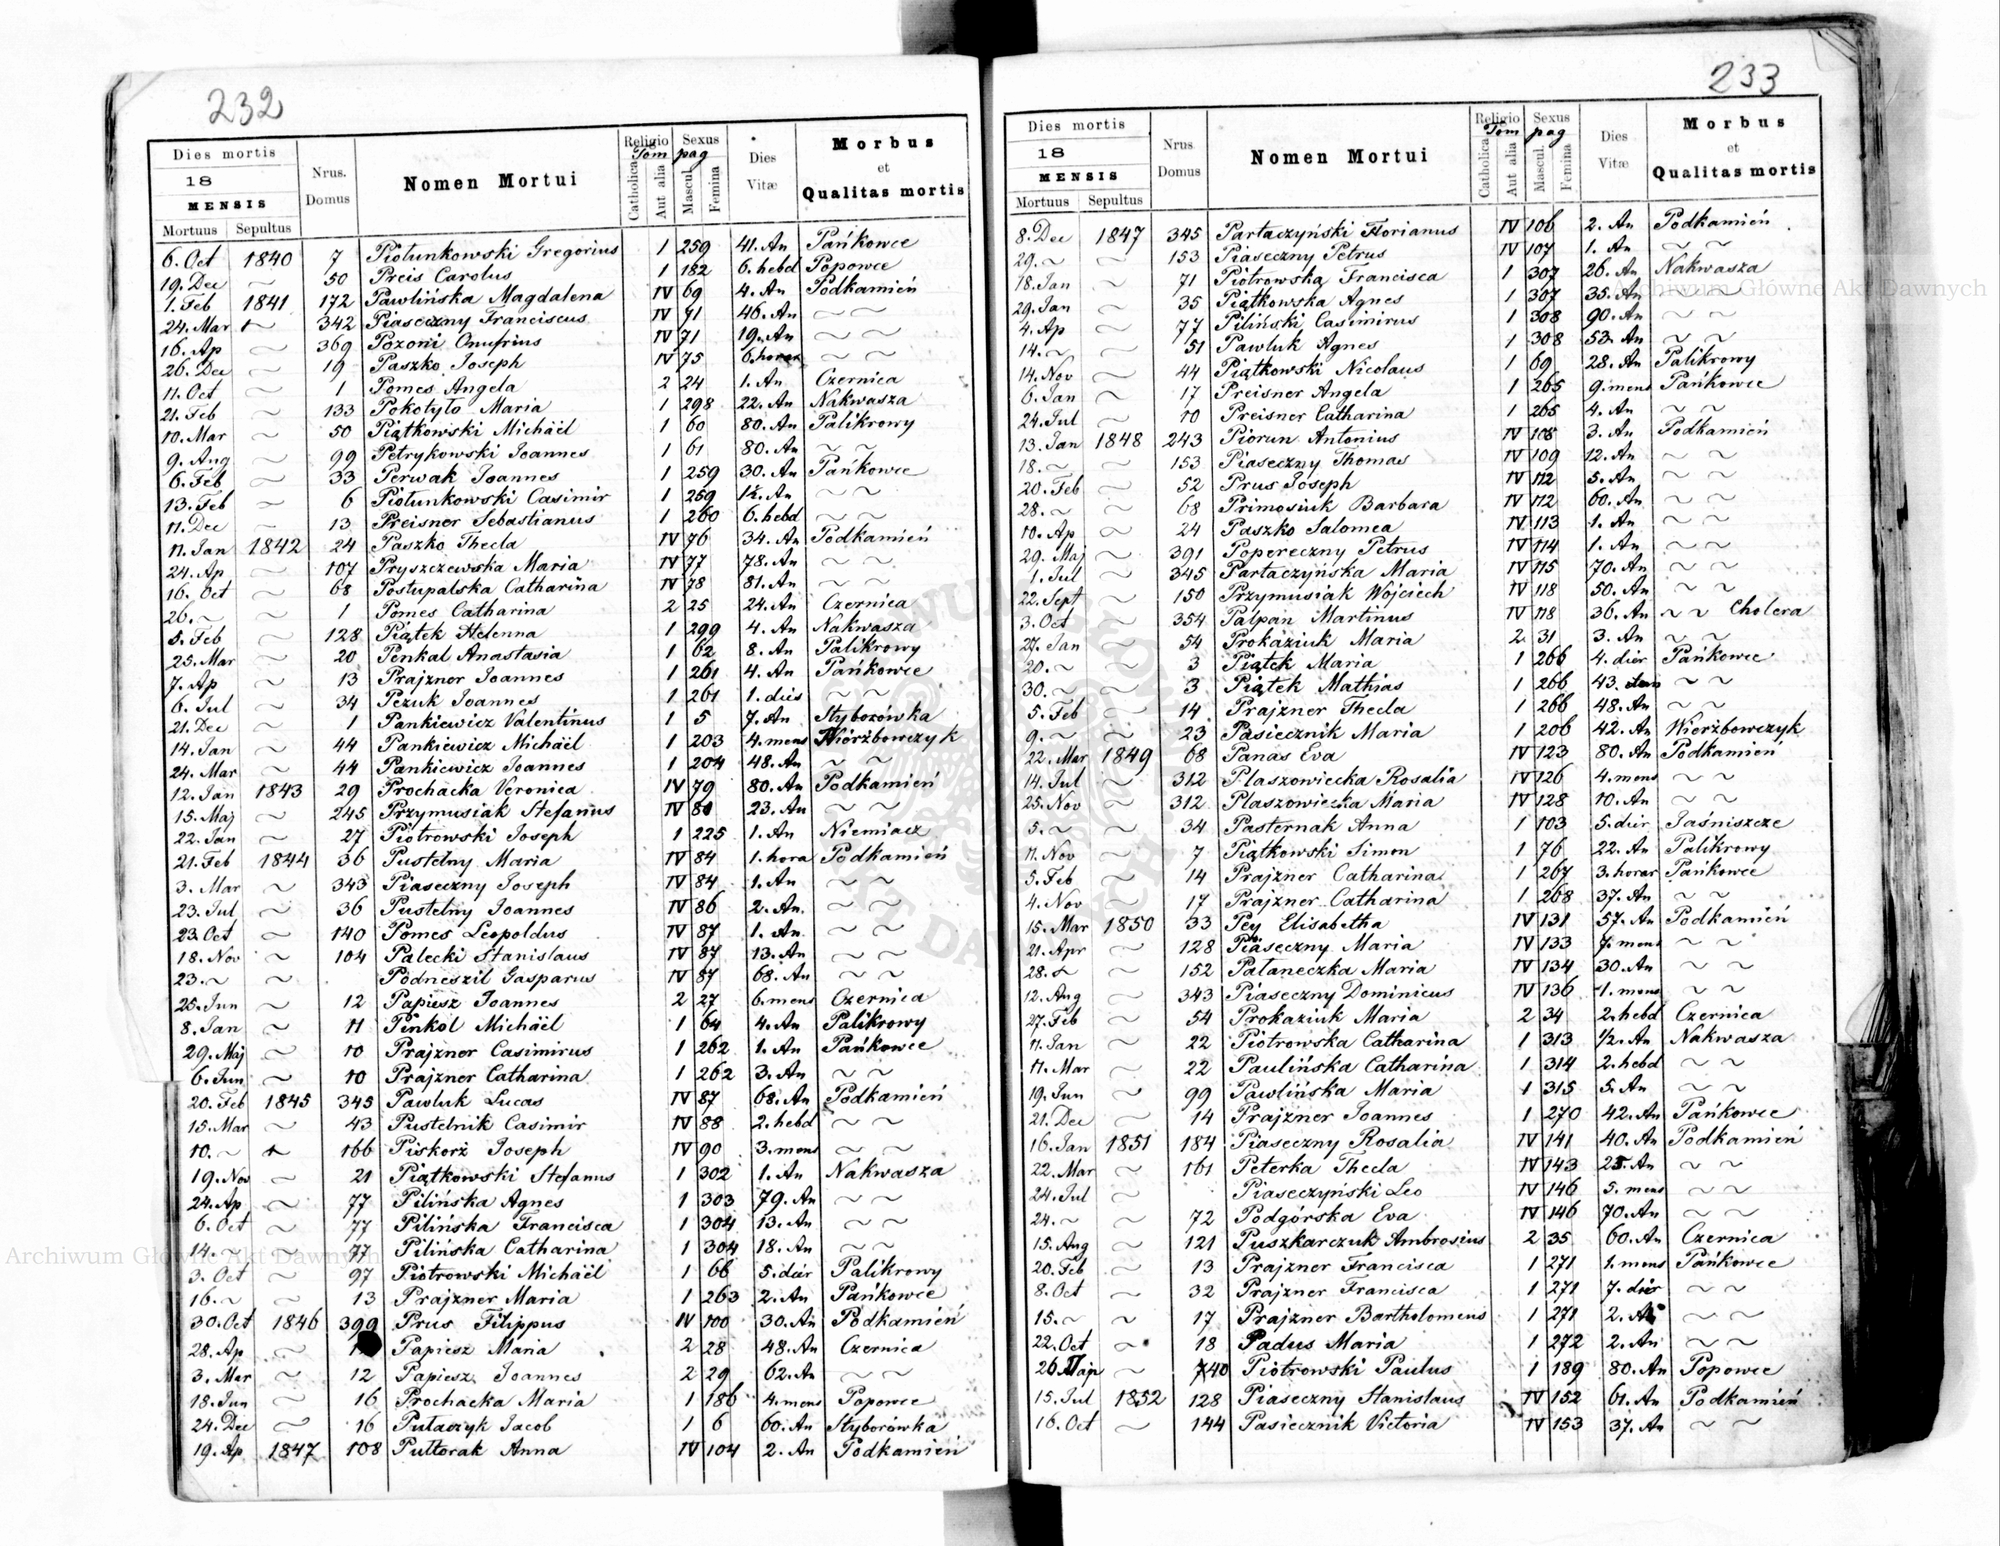 232
Dies mortis
18
MENSIS
Mortuus Sepultus
Nrus. Domus
Nomen Mortui
Religio
Catholica
Aut alia
Tom
Sexus
Mascul.
Femina
pag
Dies Vitæ
Morbus
et
Qualitas mortis
6. Oct 1840 7 Piołunkowski Gregorius 1 259 41. An Pańkowce
19. Dec ~ 50 Preis Carolus 1 182 6. hebd Popowce
1. Feb 1841 172 Pawlińska Magdalena IV 69 4. An Podkamień
24. Mar ~ 342 Piaseczny Franciscus IV 71 46. An ~ ~
16. Ap ~ 369 Pozoni Onufrius IV 71 19. An ~ ~
26. Dec ~ 19 Paszko Joseph IV 75 6. horar ~ ~
11. Oct ~ 1 Pomes Angela 2 24 1. An Czernica
21. Feb ~ 133 Pokotyło Maria 1 298 22. An Nakwasza
10. Mar ~ 50 Piątkowski Michaël 1 60 80. An Palikrowy
9. Aug ~ 99 Petrykowski Joannes 1 61 80. An ~ ~
6. Feb ~ 33 Perwak Joannes 1 259 30. An Pańkowce
13. Feb ~ 6 Piołunkowski Casimir 1 259 1½. An ~ ~
11. Dec ~ 13 Preisner Sebastianus 1 260 6. hebd ~ ~
11. Jan 1842 24 Paszko Thecla IV 76 34. An Podkamień
24. Ap ~ 107 Pryszczewska Maria IV 77 78. An ~ ~
16. Oct ~ 68 Postupalska Catharina IV 78 81. An ~ ~
26. ~ ~ 1 Pomes Catharina 2 25 24. An Czernica
5. Feb ~ 128 Piątek Helenna 1 299 4. An Nakwasza
25. Mar ~ 20 Penkal Anastasia 1 62 8. An Palikrowy
7. Ap ~ 13 Prajzner Joannes 1 261 4. An Pańkowce
6. Jul ~ 34 Pezuk Joannes 1 261 1. dies ~ ~
21. Dec ~ 1 Pankiewicz Valentinus 1 5 7. An Styborówka
14. Jan ~ 44 Pankiewicz Michaël 1 203 4. mens Wierzbowczyk
24. Mar ~ 44 Pankiewicz Joannes 1 204 48. An ~ ~
12. Jan 1843 29 Prochacka Veronica IV 79 80. An Podkamień
15. Maj ~ 245 Przymusiak Stefanus IV 80 23. An ~ ~
22. Jan ~ 27 Piotrowski Joseph 1 225 1. An Niemiacz
21. Feb 1844 36 Pustelny Maria IV 84 1. hora Podkamień
3. Mar ~ 343 Piaseczny Joseph IV 84 1. An ~ ~
23. Jul ~ 36 Pustelny Joannes IV 86 2. An. ~ ~
23. Oct ~ 140 Pomes Leopoldus IV 87 1. An. ~ ~
18. Nov ~ 104 Palecki Stanislaus IV 87 13. An ~ ~
23. ~ ~ Podneszil Gasparus IV 87 68. An ~ ~
25. Jun ~ 12 Papiesz Joannes 2 27 6. mens Czernica
8. Jan ~ 11 Pinkol Michaël 1 64 4. An Palikrowy
29. Maj ~ 10 Prajzner Casimirus 1 262 1. An Pańkowce
6. Jun ~ 10 Prajzner Catharina 1 262 3. An ~ ~
20. Feb 1845 345 Pawluk Lucas IV 87 68. An Podkamień
15. Mar ~ 43 Pustelnik Casimir IV 88 2. hebd ~ ~
10. ~ ~ 166 Piskorż Joseph IV 90 3. mens ~ ~
19. Nov ~ 21 Piątkowski Stefanus 1 302 1. An Nakwasza
24. Ap ~ 77 Pilińska Agnes 1 303 79. An ~ ~
6. Oct ~ 77 Pilińska Francisca 1 304 13. An ~ ~
14. ~ ~ 77 Pilińska Catharina 1 304 18. An ~ ~
3. Oct ~ 97 Piotrowski Michaël 1 66 5. dier Palikrowy
16. ~ ~ 13 Prajzner Maria 1 263 2. An Pańkowce
30. Oct 1846 399 Prus Filippus IV 100 30. An Podkamień
28. Ap ~ Papiesz Maria 2 28 48. An Czernica
3. Mar ~ 12 Papiesz Joannes 2 29 62. An ~ ~
18. Jun ~ 16 Prochacka Maria 1 186 4. mens Popowce
24. Dec ~ 16 Putaczyk Jacob 1 6 60. An Styborówka
19. Ap 1847 108 Puttorak Anna IV 104 2. An Podkamień
233
Dies mortis
18
MENSIS
Mortuus Sepultus
Nrus Domus
Nomen Mortui
Religio
Catholica
Aut alia
Tom
Sexus
Mascul.
Femina
pag
Dies Vitæ
Morbus
et
Qualitas mortis
8. Dec 1847 345 Partaczyński Florianus IV 106 2. An Podkamień
29. ~ ~ 153 Piaseczny Petrus IV 107 1. An ~ ~
18. Jan ~ 71 Piotrowska Francisca 1 307 26. An Nakwasza
29. Jan ~ 35 Piątkowska Agnes 1 307 35. An ~ ~
4. Ap ~ 77 Piliński Casimirus 1 308 90. An ~ ~
14. ~ ~ 51 Pawluk Agnes 1 308 53. An ~ ~
14. Nov ~ 44 Piątkowski Nicolaus 1 69 28. An Palikrowy
6. Jan ~ 17 Preisner Angela 1 265 9. mens Pańkowce
24. Jul ~ 10 Preisner Catharina 1 265 4. An ~ ~
13. Jan 1848 243 Piorun Antonius IV 108 3. An Podkamień
18. ~ ~ 153 Piaseczny Thomas IV 109 12. An ~ ~
20. Feb ~ 52 Prus Joseph IV 112 5. An ~ ~
28. ~ ~ 68 Primosiuk Barbara IV 112 60. An ~ ~
10. Ap ~ 24 Paszko Salomea IV 113 1. An ~ ~
29. Maj ~ 391 Popereczny Petrus IV 114 1. An ~ ~
1. Jul ~ 345 Partaczyńska Maria IV 115 70. An ~ ~
22. Sept ~ 150 Przymusiak Wojciech IV 118 50. An ~ ~
3. Oct ~ 354 Palpan Martinus IV 118 36. An ~ ~ Cholera
27. Jan ~ 54 Prokaziuk Maria 2 31 3. An ~ ~
20. ~ ~ 3 Piątek Maria 1 266 4. dier Pańkowce
30. ~ ~ 3 Piątek Mathias 1 266 43. ~ ~
5. Feb ~ 14 Prajzner Thecla 1 266 48. An ~ ~
9. ~ ~ 23 Pasiecznik Maria 1 206 42. An Wierżbowczyk
22. Mar 1849 68 Panas Eva IV 123 80. An Podkamień
14. Jul ~ 312 Płaszowiecka Rosalia IV 126 4. mens ~ ~
25. Nov ~ 312 Płaszowiecka Maria IV 128 10. An ~ ~
5. ~ ~ 34 Pasternak Anna 1 103 5. dier Jaśniszcze
11. Nov ~ 7 Piątkowski Simon 1 76 22. An Palikrowy
5. Feb ~ 14 Prajzner Catharina 1 267 3. horar Pańkowce
4. Nov ~ 17 Prajzner Catharina 1 268 37. An ~ ~
15. Mar 1850 33 Pey Elisabetha IV 131 57. An Podkamień
21. Apr ~ 128 Piaseczny Maria IV 133 7. mens ~ ~
28. ~ ~ 152 Pataneczka Maria IV 134 30. An ~ ~
12. Aug ~ 343 Piaseczny Dominicus IV 136 1. mens ~ ~
27. Feb ~ 54 Prokaziuk Maria 2 34 2. hebd Czernica
11. Jan ~ 22 Piotrowska Catharina 1 313 ½. An Nakwasza
11. Mar ~ 22 Paulińska Catharina 1 314 2. hebd ~ ~
19. Jun ~ 99 Pawlińska Maria 1 315 5. An ~ ~
21. Dec ~ 14 Prajzner Joannes 1 270 42. An Pańkowce
16. Jan 1851 184 Piaseczny Rosalia IV 141 40. An Podkamień
22. Mar ~ 161 Peterka Thecla IV 143 25. An ~ ~
24. Jul ~ Piaseczyński Leo IV 146 5. mens ~ ~
24. ~ ~ 72 Podgórska Eva IV 146 70. An ~ ~
15. Aug ~ 121 Puszkarczuk Ambrosius 2 35 60. An Czernica
20. Feb ~ 13 Prajzner Francisca 1 271 1. mens Pańkowce
8. Oct ~ 32 Prajzner Francisca 1 271 7. dier ~ ~
15. ~ ~ 17 Prajzner Bartholomeus 1 271 2. An ~ ~
22. Oct ~ 18 Padus Maria 1 272 2. An ~ ~
26. Maja ~ 740 Piotrowski Paulus 1 189 80. An Popowce
15. Jul 1852 128 Piaseczny Stanislaus IV 152 61. An Podkamień
16. Oct ~ 144 Pasiecznik Victoria IV 153 37. An ~ ~
Archiwum Główne Akt Dawnych
Archiwum Główne Akt Dawnych